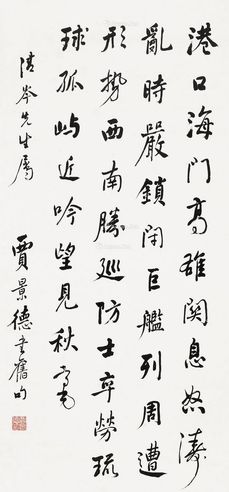 港口海門高雄關息怒濤
亂時嚴鎖閉巨艦列周遭
形勢西南勝巡防士卒勞琉
球孤嶼近吟望見秋
岑先生屬
賈景德書舊句